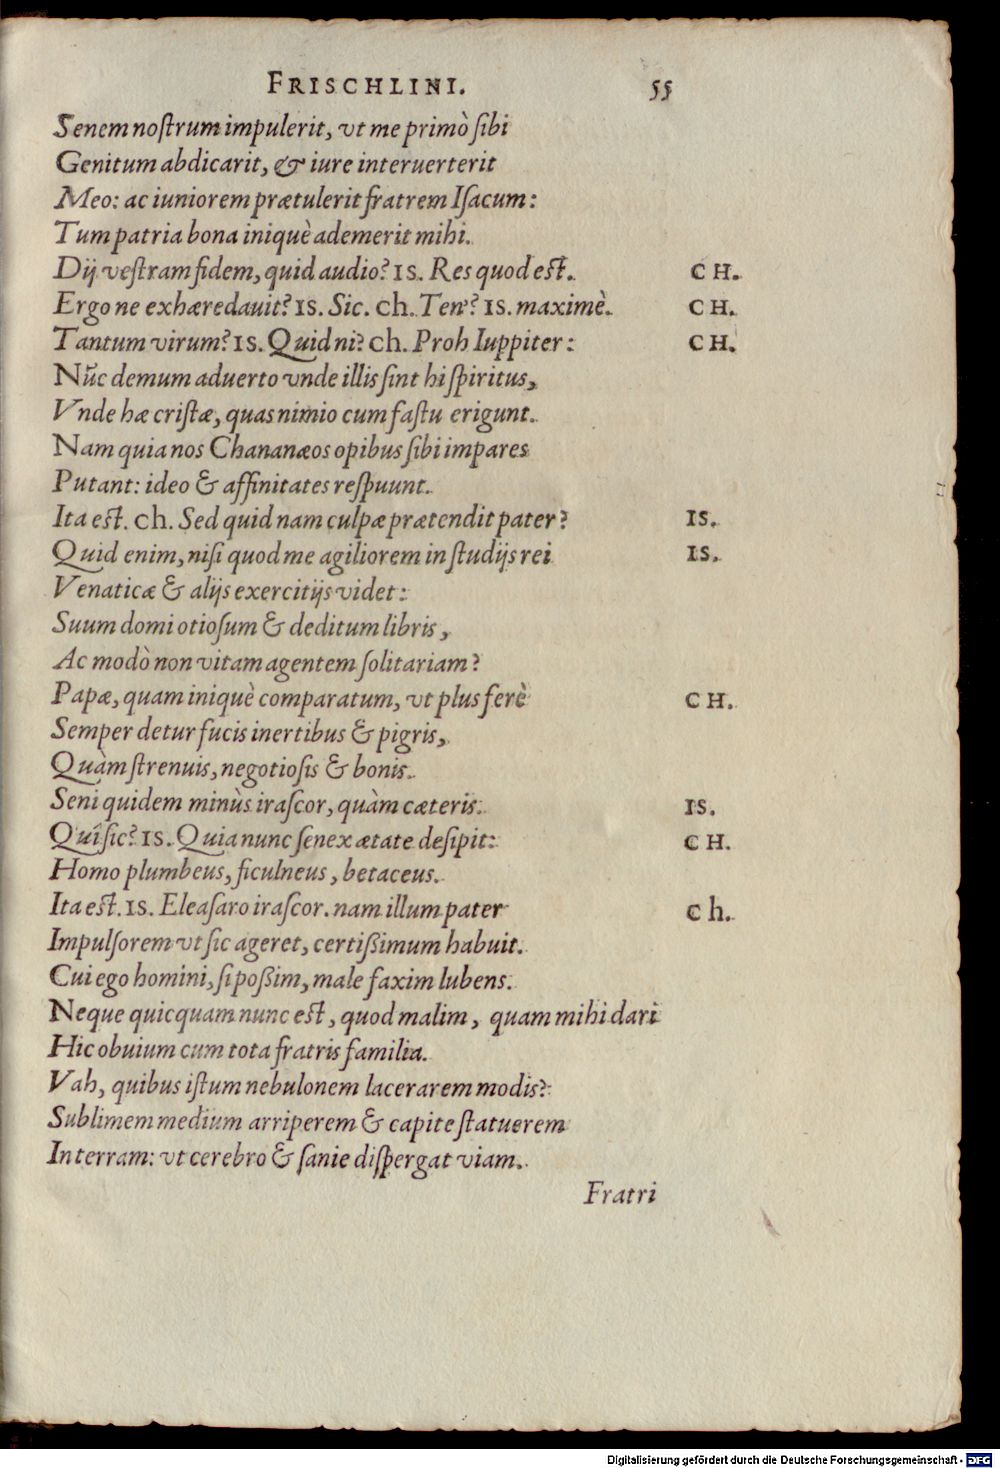 FRISCHLINI. 55
Senem noſtrum impulerit, vt me primò ſibi
Genitum abdicarit, & iure interuerterit
Meo: ac iuniorem prætulerit fratrem Iſacum:
Tum patria bona iniquè ademerit mihi.
Dij veſtram fidem, quid audio? IS. Res quod eſt. CH.
Ergo ne exhæredauit? IS. Sic. ch. Ten'? IS. maximè. CH.
Tantum virum? IS. Quid ni? ch. Proh Iuppiter: CH.
Nũc demum aduerto vnde illis ſint hi ſpiritus,
Vnde hæ criſtæ, quas nimio cum faſtu erigunt.
Nam quia nos Chananæos opibus ſibi impares
Putant: ideo & affinitates reſpuunt.
Ita eſt. ch. Sed quid nam culpæ prætendit pater? IS.
Quid enim, niſi quod me agiliorem in ſtudijs rei IS.
Venaticæ & alijs exercitijs videt:
Suum domi otioſum & deditum libris,
Ac modò non vitam agentem ſolitariam?
Papæ, quam iniquè comparatum, vt plus ferè CH.
Semper detur fucis inertibus & pigris,
Quàm ſtrenuis, negotioſis & bonis.
Seni quidem minùs iraſcor, quàm cæteris. IS.
Quî ſic? IS. Quia nunc ſenex ætate deſipit: CH.
Homo plumbeus, ficulneus, betaceus.
Ita eſt. IS. Eleaſaro iraſcor. nam illum pater Ch.
Impulſorem vt ſic ageret, certißimum habuit.
Cui ego homini, ſi poßim, male faxim lubens.
Neque quicquam nunc eſt, quod malim, quam mihi dari
Hic obuium cum tota fratris familia.
Vah, quibus iſtum nebulonem lacerarem modis?
Sublimem medium arriperem & capite ſtatuerem
In terram: vt cerebro & ſanie diſpergat viam.
Fratri
Digitalisierung gefördert durch die Deutsche Forschungsgemeinschaft - DFG